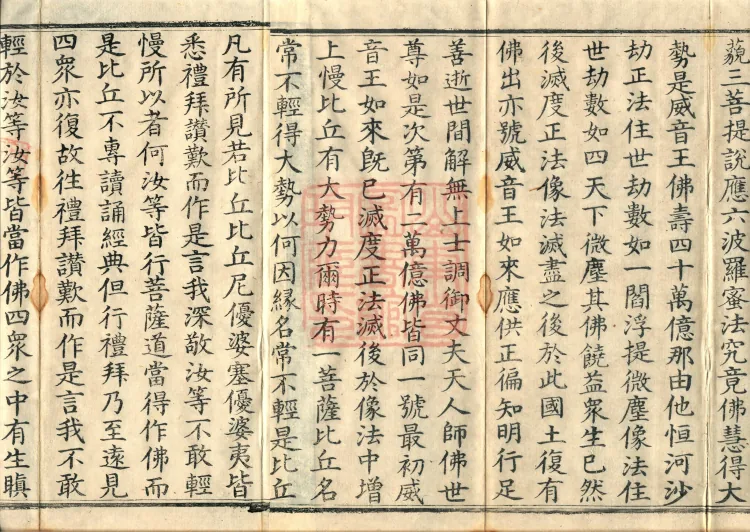 藐三菩提說應六波羅蜜法究竟佛慧得大
勢是威音王佛壽四十萬億那由他恒河沙
劫正法住世劫數如一閻浮提微塵像法住
世劫數如四天下微塵其佛饒益衆生已然
後滅度正法像法滅盡之後於此國土復有
佛出亦號威音王如來應供正徧知明行足
善逝世間解無上士調御丈夫天人師佛世
尊如是次第有二萬億佛皆同一號最初威
音王如來旣已滅度正法滅後於像法中增
上慢比丘有大勢力爾時有一菩薩比丘名
常不輕得大勢以何因緣名常不輕是比丘
凡有所見若比丘比丘尼優婆塞優婆夷皆
悉禮拜讚歎而作是言我深敬汝等不敢輕
慢所以者何汝等皆行菩薩道當得作佛而
是比丘不專讀誦經典但行禮拜乃至遠見
四衆亦復故往禮拜讚歎而作是言我不敢
輕於汝等汝等皆當作佛四衆之中有生瞋